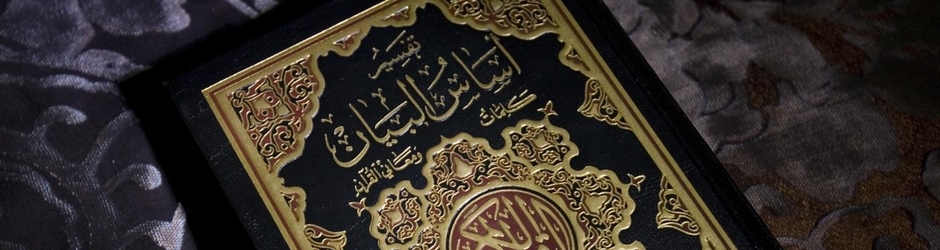 تفسير
أساس البيان
كلمات
ومعاني القرآن